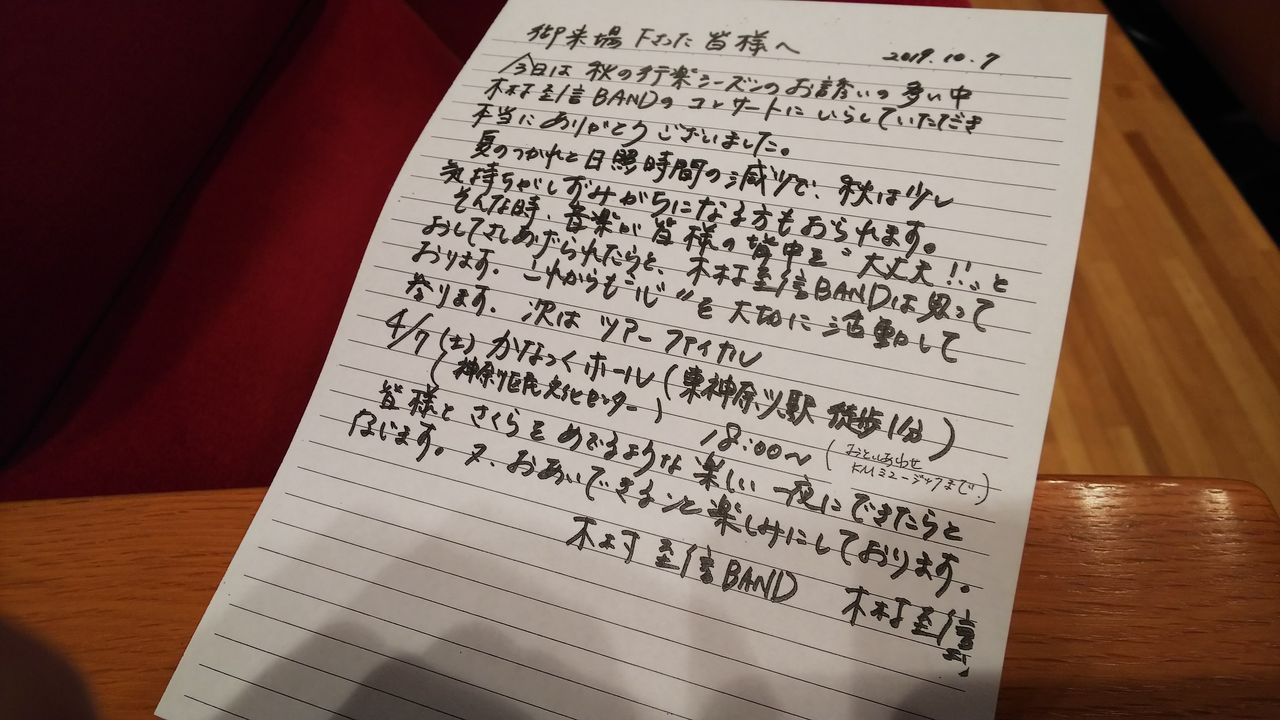 御来場下さった皆様へ 2017.10.7
今日は秋の行楽シーズンのお誘いの多い中
木村至信BANDのコンサートにいらしていただき
本当にありがとうございました。
夏のつかれと日照時間の減少で、秋は少し
気持ちがしずみがちになる方もおられます。
そんな時、音楽が皆様の背中を"大丈夫!!"と
おしてさしあげられたらと、木村至信BANDは思って
おります。これからも"心"を大切に活動して
参ります。次はツアーファイナル
4/7(土)かなっくホール(東神奈川駅徒歩1分)
(神奈川区民文化センター) 18:00〜(おといあわせ
KMミュージックまで。)
皆様とさくらをめでるような楽しい一夜にできたらと
存じます。又、おあいできること楽しみにしております。
木村至信BAND 木村至信
より